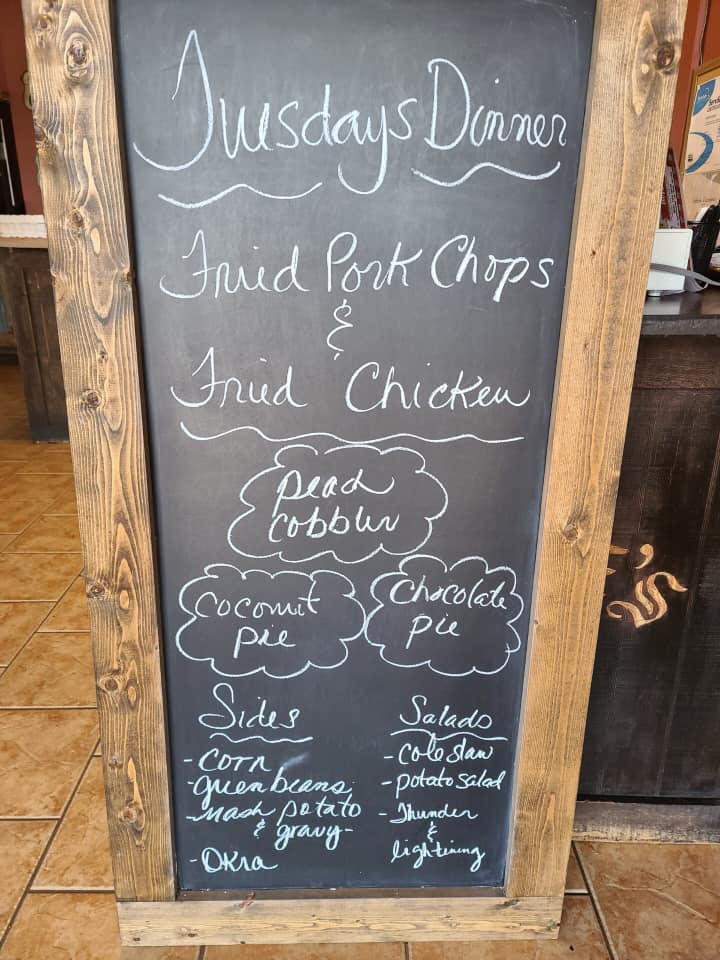 Tuesdays Dinner
Fried Pork Chops
&
Fried Chicken
peach
cobbler
Coconut
pie
Chocolate
pie
Sides
- corn
- green beans
- mash potato
& gravy -
- Okra
Salads
- cole slaw
- potato salad
- Thunder
&
lightining